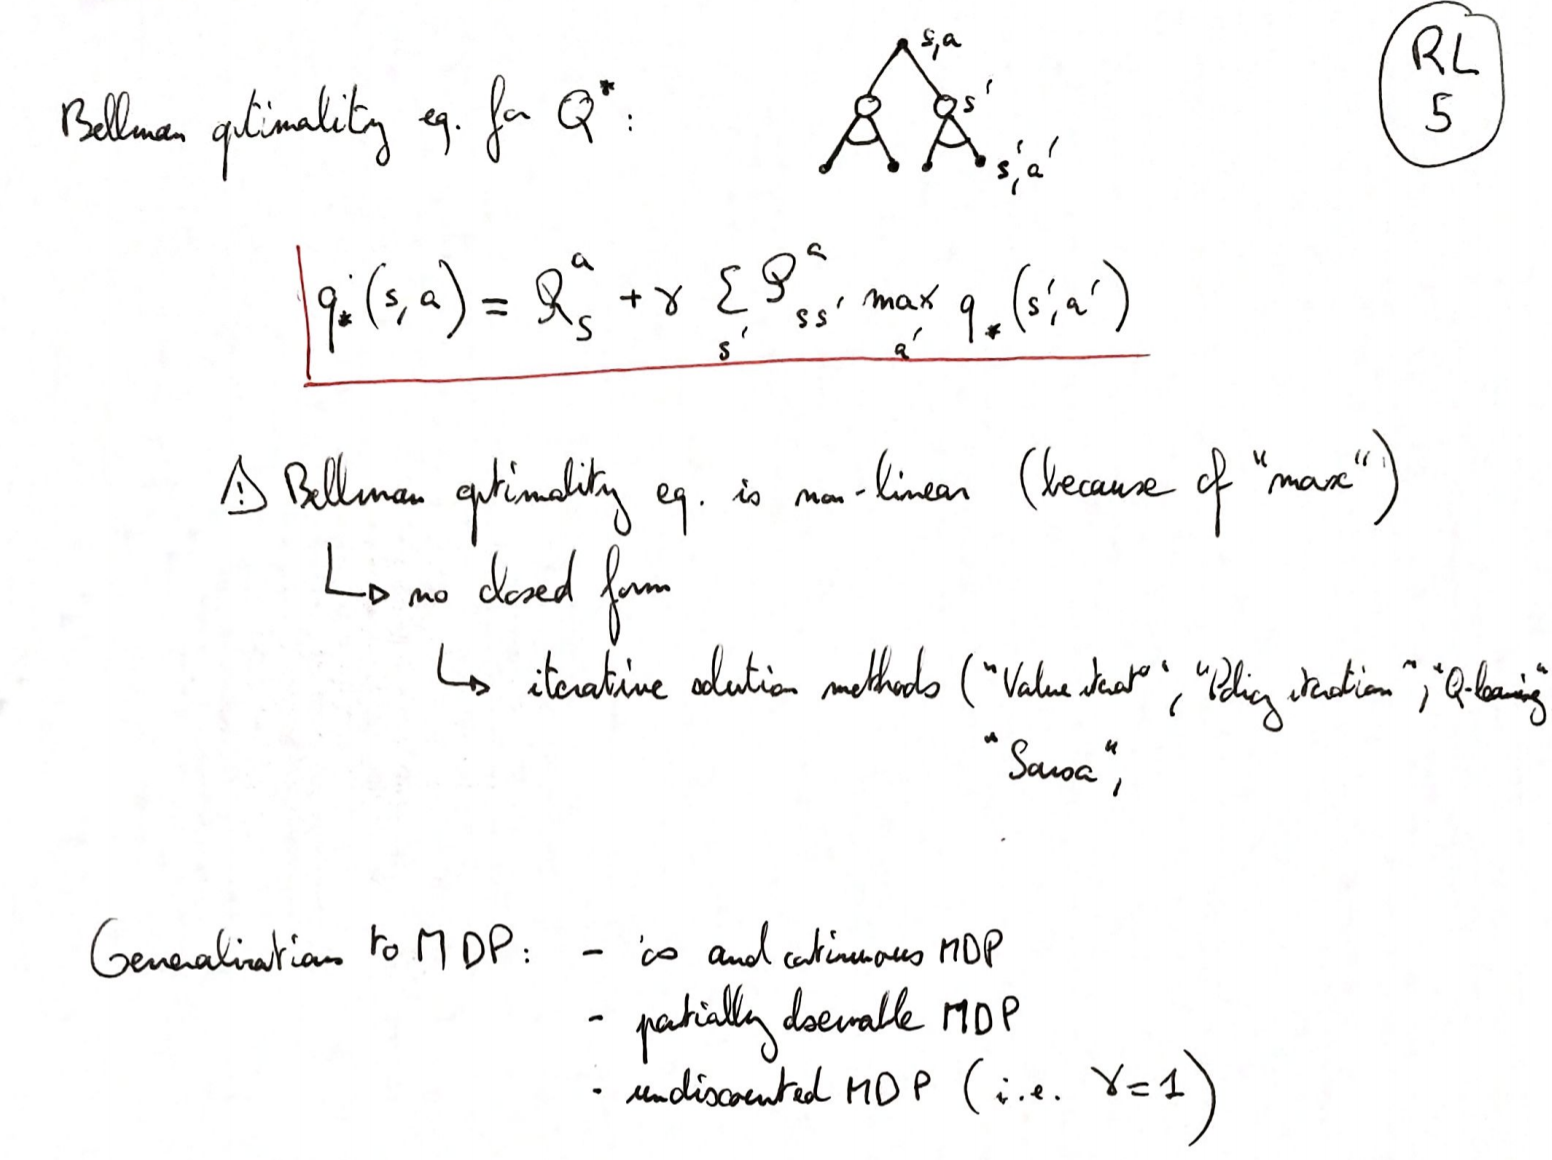 RL
5
s,a
s'
s',a'
Bellman optimality eq. for Q* :
q*(s,a) = R_s^a + γ Σ_s' P_ss'^a max_a' q*(s',a')
⚠ Bellman optimality eq. is non-linear (because of "max")
↳ no closed form
↳ iterative solution methods ("Value iterat°", "Policy iteration", "Q-learning"
"Sarsa",
Generalization to MDP: - ∞ and continuous MDP
- partially observable MDP
- undiscounted MDP (i.e. γ=1)